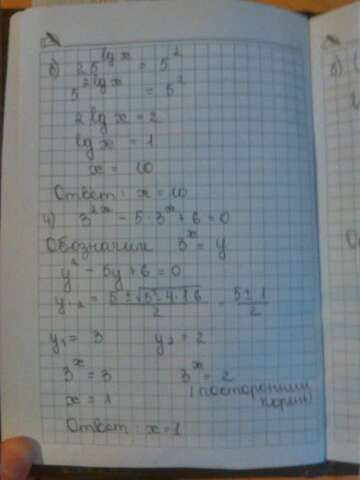 б) 25^lg x = 5^2
5^2lg x = 5^2
2 lg x = 2
lg x = 1
x = 10
Ответ: x = 10
4) 3^2x - 5·3^x + 6 = 0
Обозначим 3^x = y
y^2 - 5y + 6 = 0
y1-2 = (5 ± √(5^2 - 4·1·6))/2 = (5 ± 1)/2
y1 = 3 y2 = 2
3^x = 3 3^x = 2
x = 1 (посторонний корень)
Ответ: x = 1